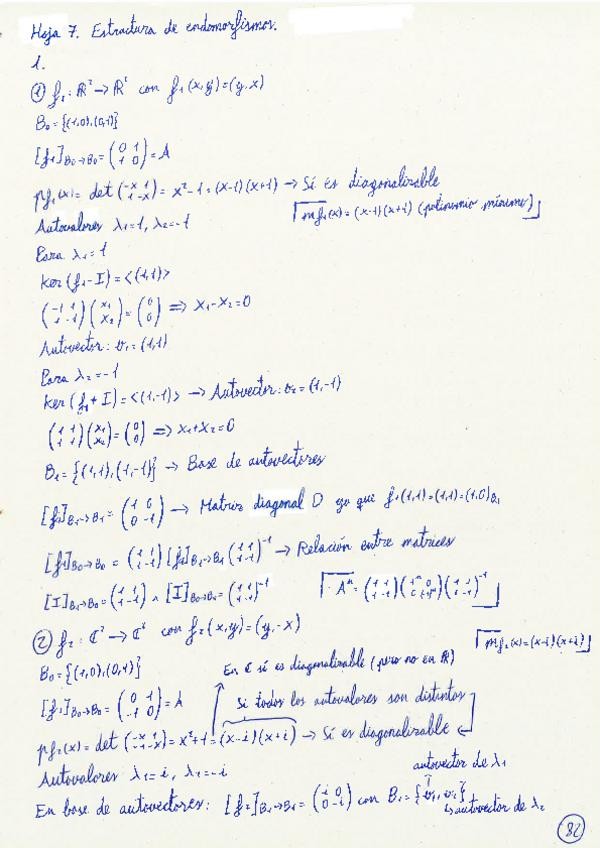 Hoja 7. Estructura de endomorfismos.
1.
① f₂: ℝ² → ℝ² con f₁(x,y)=(y,x)
B₀={(1,0),(0,1)}
[f₁]B₀→B₀ = (0 1; 1 0) = A
pf₁(x) = det (-x 1; 1 -x) = x²-1 = (x-1)(x+1) → Sí es diagonalizable
mf₁(x) = (x-1)(x+1) (polinomio mínimo)
Autovalores λ₁=1, λ₂=-1
Para λ₁=1
Ker(f₁-I) = <(1,1)>
(-1 1; 1 -1)(x₁; x₂) = (0; 0) ⇒ x₁-x₂=0
Autovector: v₁=(1,1)
Para λ₂=-1
Ker(f₁+I) = <(1,-1)> → Autovector: v₂=(1,-1)
(1 1; 1 1)(x₁; x₂) = (0; 0) ⇒ x₁+x₂=0
B₁={(1,1),(1,-1)} → Base de autovectores
[f₁]B₁→B₁ = (1 0; 0 -1) → Matriz diagonal D ya que f₁(1,1)=(1,1)=(1,0)B₁
[f₁]B₀→B₀ = (1 1; 1 -1) [f₁]B₁→B₁ (1 1; 1 -1)⁻¹ → Relación entre matrices
[I]B₁→B₀ = (1 1; 1 -1) ∧ [I]B₀→B₁ = (1 1; 1 -1)⁻¹
Aⁿ = (1 1; 1 -1)(1ⁿ 0; 0 (-1)ⁿ)(1 1; 1 -1)⁻¹
② f₂: ℂ² → ℂ² con f₂(x,y)=(y,-x)
mf₂(x)=(x-i)(x+i)
B₀={(1,0),(0,1)}
En ℂ sí es diagonalizable (pero no en ℝ)
[f₂]B₀→B₀ = (0 1; -1 0) = A
Si todos los autovalores son distintos
pf₂(x) = det (-x 1; -1 -x) = x²+1 = (x-i)(x+i) → Sí es diagonalizable
Autovalores λ₁=i, λ₂=-i
autovector de λ₁
En base de autovectores: [f₂]B₁→B₁ = (i 0; 0 -i) con B₁={v₁, v₂}
autovector de λ₂
82